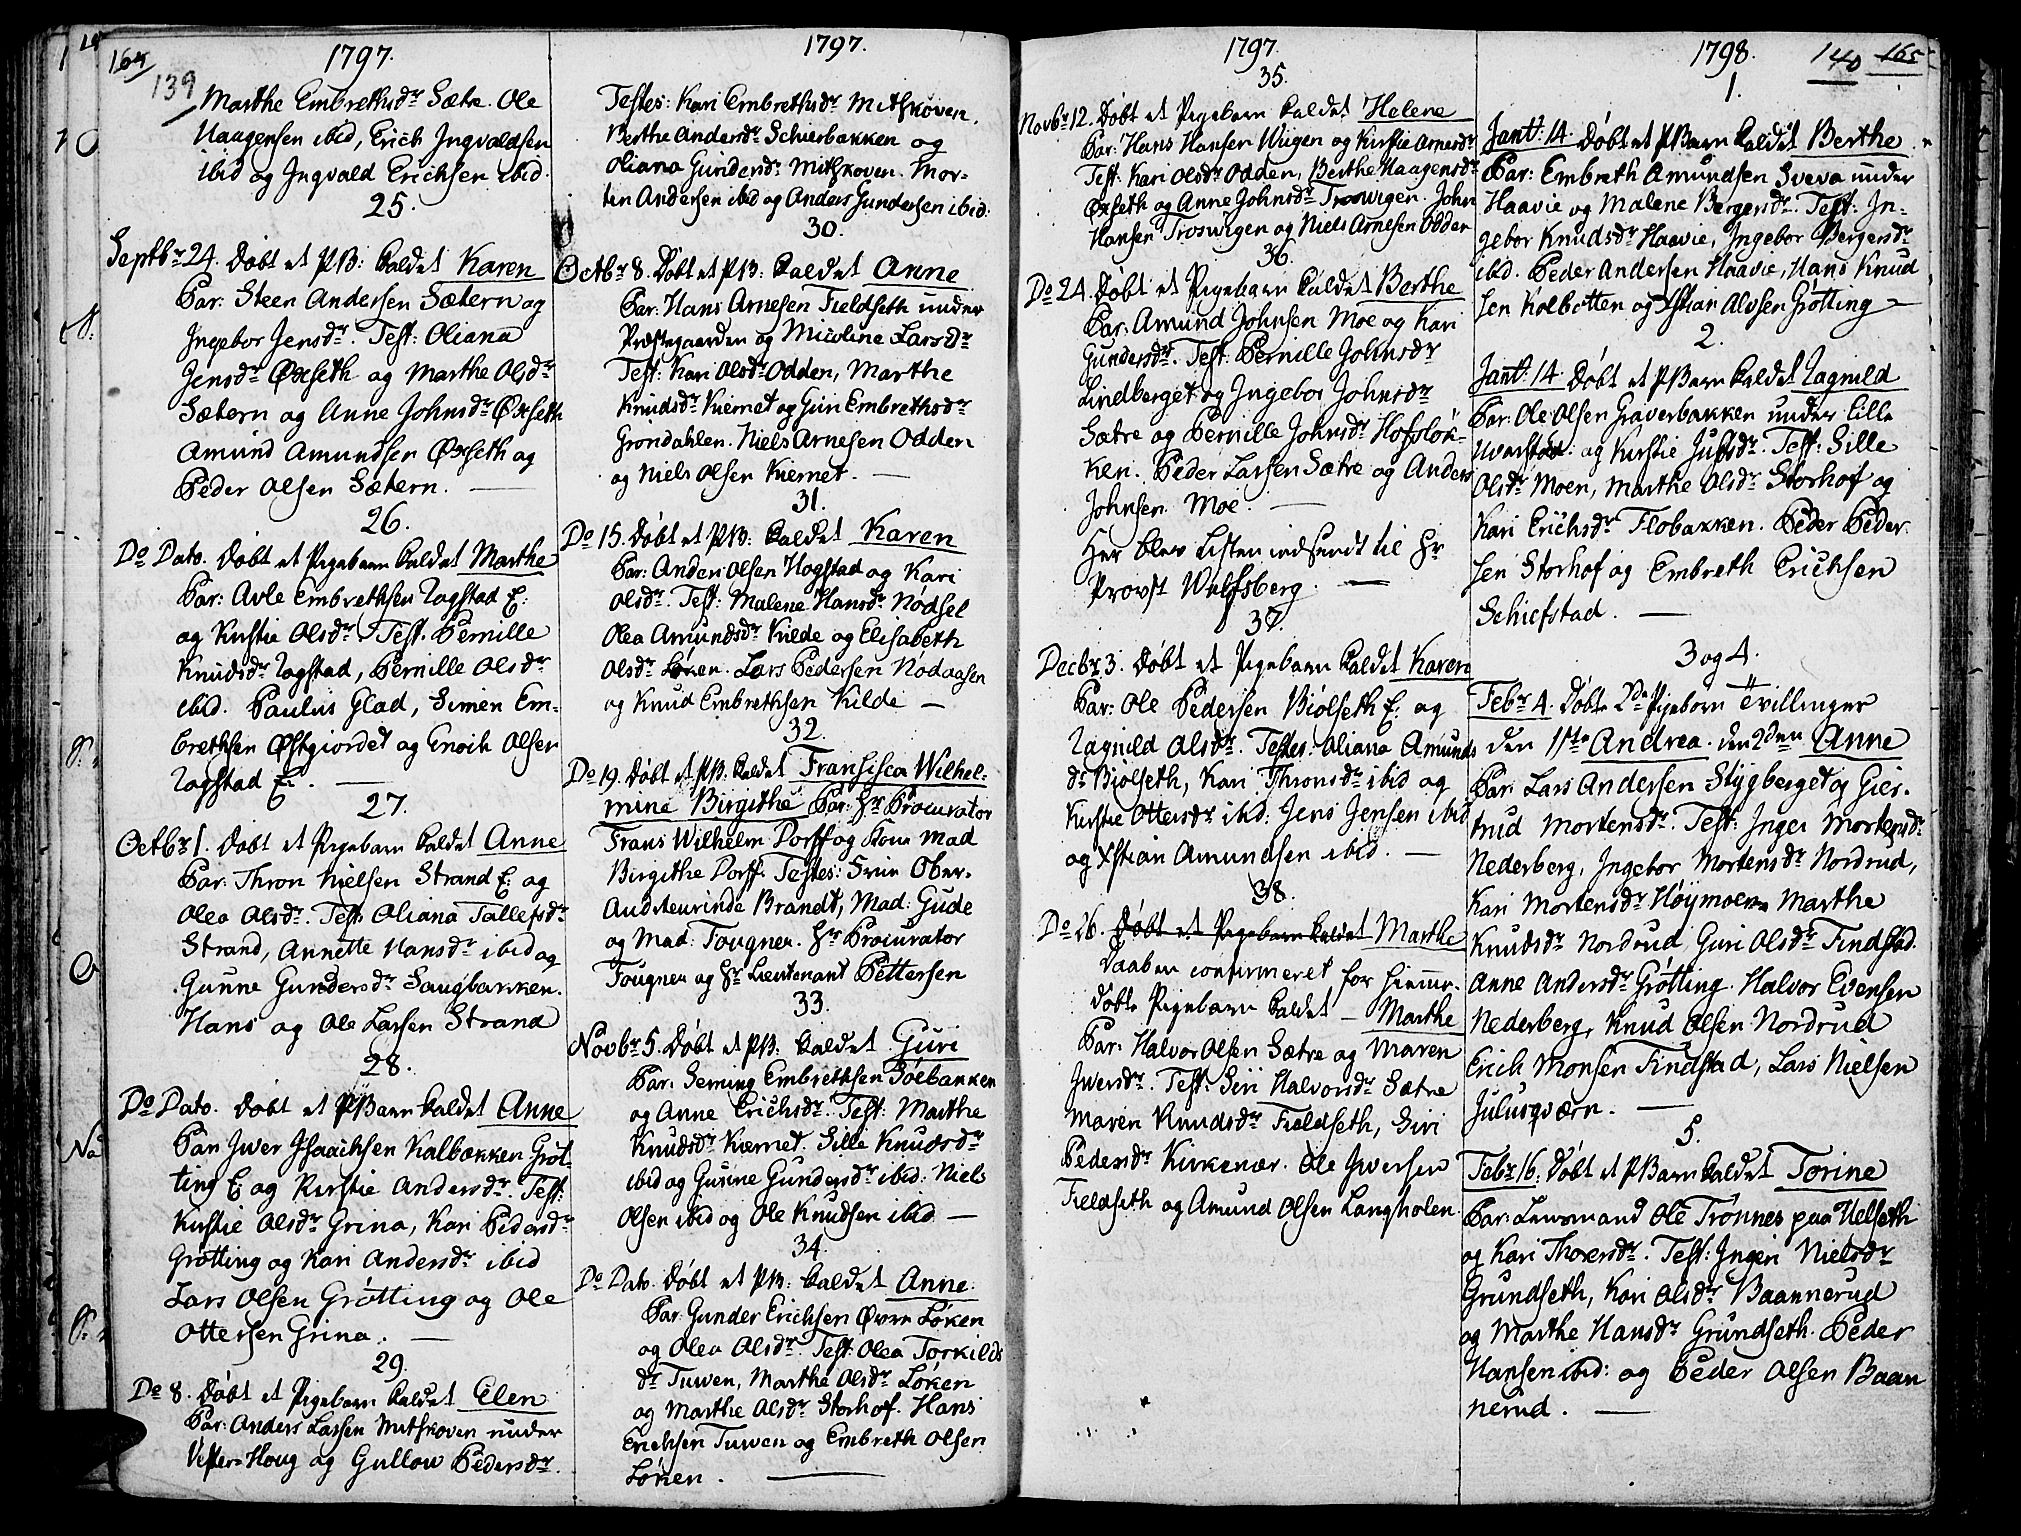 164
139
1797.
Marthe Embrethsdr Sætre. Ole
Haagensen ibid, Erich Ingvaldsen
ibid og Ingvald Erichsen ibid.
25.
Septbr 24. Døbt et PB: kaldet Karen
Par: Steen Andersen Sætern og
Ingebor Jensdr. Test: Oliana
Jensdr Øxseth og Marthe Olsdr
Sætern og Anne Johnsdr Øxseth
Amund Amundsen Øxseth og
Peder Olsen Sætern.
26.
Do Dato. Døbt et Pigebarn kaldet Marthe
Par: Avle Embrethsen Zagstad E:
og Kirstie Olsdr. Test: Pernille
Knudsdr Zagstad, Pernille Olsdr
ibid. Paulus Glad, Simen Em-
brethsen Østgiordet og Enoch Olsen
Zagstad E.
27.
Octbr 1. Døbt et Pigebarn kaldet Anne
Par: Thron Nielsen Strand E: og
Olea Olsdr. Test: Oliana Tallefsdr
Strand, Annette Hansdr ibid og
Gunne Gundersdr Saugbakken.
Hans og Ole Larsen Strand
28.
Do Dato. Døbt et PBarn kaldet Anne
Par Iver Isaachsen Kalbækken Grøt-
ting E. og Kirstie Andersdr. Test:
Kirstie Olsdr Grina, Kari Pedersdr
Grøtting og Kari Andersdr ibid
Lars Olsen Grøtting og Ole
Ottersen Grina.
29.
Do 8. Døbt et Pigebarn kaldet Elen
Par: Anders Larsen Mitskoven under
Vester-Houg og Gullow Pedersdr.
1797.
Testes: Kari Embrethsdr Mitskoven.
Berthe Andersdr Schierbakken og
Oliana Gundersdr Mitskoven. Mor-
ten Andersen ibid og Anders Gundersen ibid:
30.
Octbr 8. Døbt et PB: kaldet Anne
Par: Hans Arnesen Fieldseth under
Præstegaarden og Nicoline Larsdr
Test: Kari Olsdr Odden, Marthe
Knudsdr Kiernet og Guri Embrethsdr
Grøndahlen. Niels Arnesen Odden
og Niels Olsen Kiernet.
31.
Do 15. Døbt et PB: kaldet Karen
Par: Anders Olsen Hogstad og Kari
Olsdr. Test: Malene Hansdr Nødsel
Olea Amundsdr Kilde og Elisabeth
Olsdr Løken. Lars Pedersen Nødaasen
og Knud Embrethsen Kilde
32.
Do 19. Døbt et PB: kaldet Fransisca Wilhel-
mine Birgithe Par: Hr Procurator
Frans Wilhelm Dorff og Kone Mad
Birgithe Dorff. Testes: Frue Ober-
Auditeurinde Brandt, Mad: Gude
og Mad: Tougner. Hr Procurator
Tougner og Hr Lieutenant Pettersen
33.
Novbr 5. Døbt et PB: kaldet Guri
Par: Seming Embrethsen Soebakken
og Anne Erichsdr. Test: Marthe
Knudsdr Kiernet. Sille Knudsdr
ibid og Gunne Gundersdr ibid. Niels
Olsen ibid og Ole Knudsen ibid
34.
Do Dato. Døbt et PB: kaldet Anne.
Par: Gunder Erichsen Øvre Løken
og Olea Olsdr. Test: Olea Torkilds
dr Tuwen, Marthe Olsdr Løken
og Marthe Olsdr Storhof. Hans
Erichsen Tuwen og Embreth Olsen
Løken.
1797.
35.
Novbr 12. Døbt et Pigebarn kaldet Helene
Par: Hans Hansen Wiigen og Kirstie Arnesdr
Test. Kari Olsdr Odden, Berthe Haagensdr
Øxseth og Anne Johnsdr Troswigen. John
Hansen Troswigen og Niels Arnesen Odden
36.
Do 24. Døbt et Pigebarn kaldet Berthe
Par: Amund Johnsen Moe og Kari
Gundersdr. Test: Pernille Johnsdr
Lindberget og Ingebor Johnsdr
Sætre og Pernille Johnsdr Hofsløk-
ken. Peder Larsen Sætre og Anders
Johnsen Moe.
Her blev Listen indsendt til Hr
Provst Wulfsberg.
37.
Decbr 3. Døbt et Pigebarn kaldet Karen
Par: Ole Pedersen Biølseth E: og
Zagnild Olsdr. Testes: Oliana Amunds
dr Biølseth, Kari Thronsdr ibid og
Kirstie Ottersdr ibid: Jens Jensen ibid
og Xstian Amundsen ibid.
38.
Do 26. Døbt et Pigebarn kaldet Marthe
Daaben confirmeret for hiemme-
døbte Pigebarn kaldet – Marthe
Par: Halvor Olsen Sætre og Maren
Iversdr. Test: Siri Halvorsdr Sætre
Maren Knudsdr Fieldseth, Siri
Pedersdr Kirkenær. Ole Iversen
Fieldseth og Amund Olsen Langholen
1798.
140
165
1.
Jant: 14. Døbt et PBarn kaldet Berthe.
Par: Embreth Amundsen Sveva under
Haavie og Malene Bergersdr. Test: In-
gebor Knudsdr Haavie, Ingebor Bergersdr
ibid. Peder Andersen Haavie, Hans Knud
sen Kolbotten og Xstian Alvsen Grøtting
2.
Jant: 14. Døbt et PBarn kaldet Zagnild
Par: Ole Olsen Graverbakken under Lille
Hvarstad. og Kirstie Justsdr. Test: Sille
Olsdr Moen, Marthe Olsdr Storhof og
Kari Erichsdr Flobakken. Peder Peder-
sen Storhof og Embreth Erichsen
Schiefstad.
3 og 4.
Febr 4. Døbt 2de Pigebørn Tvillinger
den 1ste Andrea. den 2den Anne
Par: Lars Andersen Stygberget og Gier-
trud Mortensdr. Test: Inger Mortensdr
Nederberg, Ingebor Mortensdr Nordrud,
Kari Mortensdr Høymoen Marthe
Knudsdr Nordrud Guri Olsdr Findstad.
Anne Andersdr Grøtting. Halvor Evensen
Nederberg, Knud Olsen Nordrud
Erich Monsen Findstad, Lars Nielsen
Julusqværn.
5.
Febr 16. Døbt et PBarn kaldet Torine
Par: Lensmand Ole Trønnes paa Helseth
og Kari Thoresdr. Test: Ingeri Nielsdr
Grundseth, Kari Olsdr Baannerud
og Marthe Hansdr Grundseth. Peder
Hansen ibid: og Peder Olsen Baan
nerud.